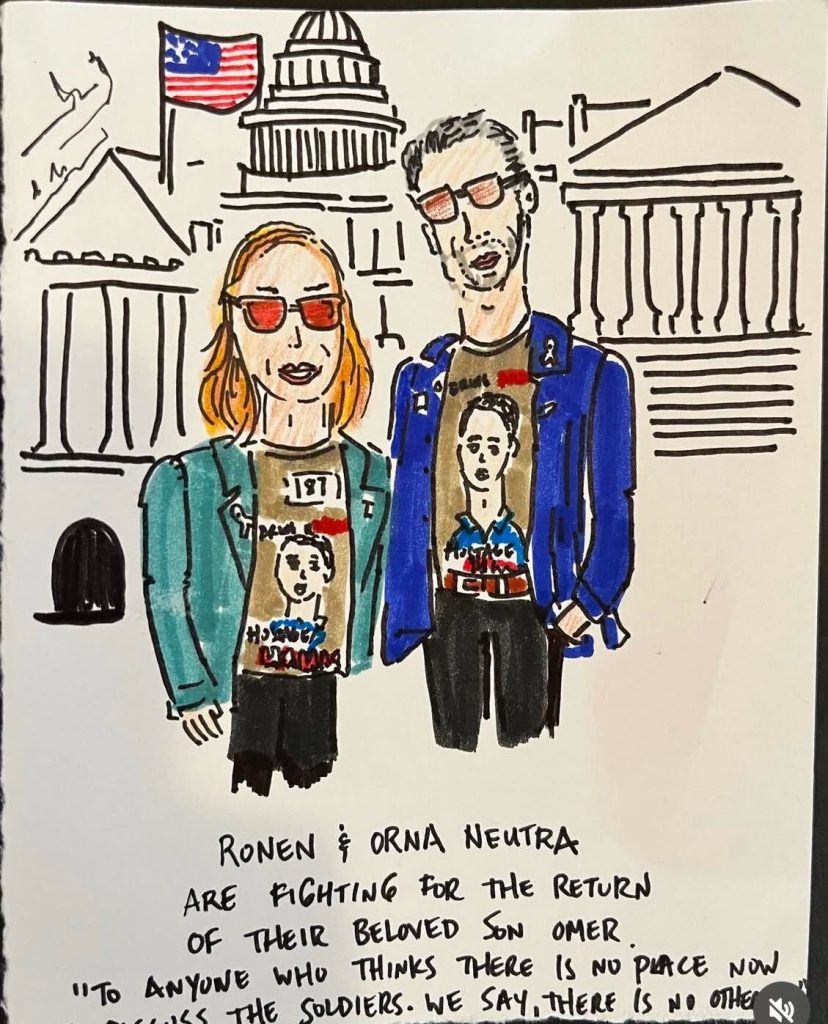 187
HOSTAGE
HOSTAGE
RONEN & ORNA NEUTRA
ARE FIGHTING FOR THE RETURN
OF THEIR BELOVED SON OMER.
"TO ANYONE WHO THINKS THERE IS NO PLACE NOW
DISCUSS THE SOLDIERS. WE SAY, THERE IS NO OTHER